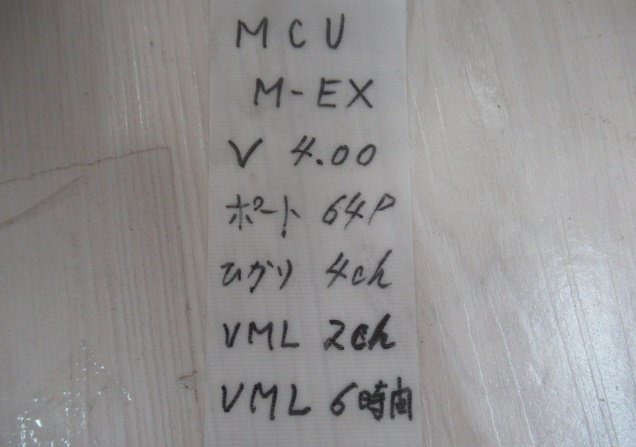 MCU
M-EX
V 4.00
ポート 64P
ひかり 4ch
VML 2ch
VML 6時間